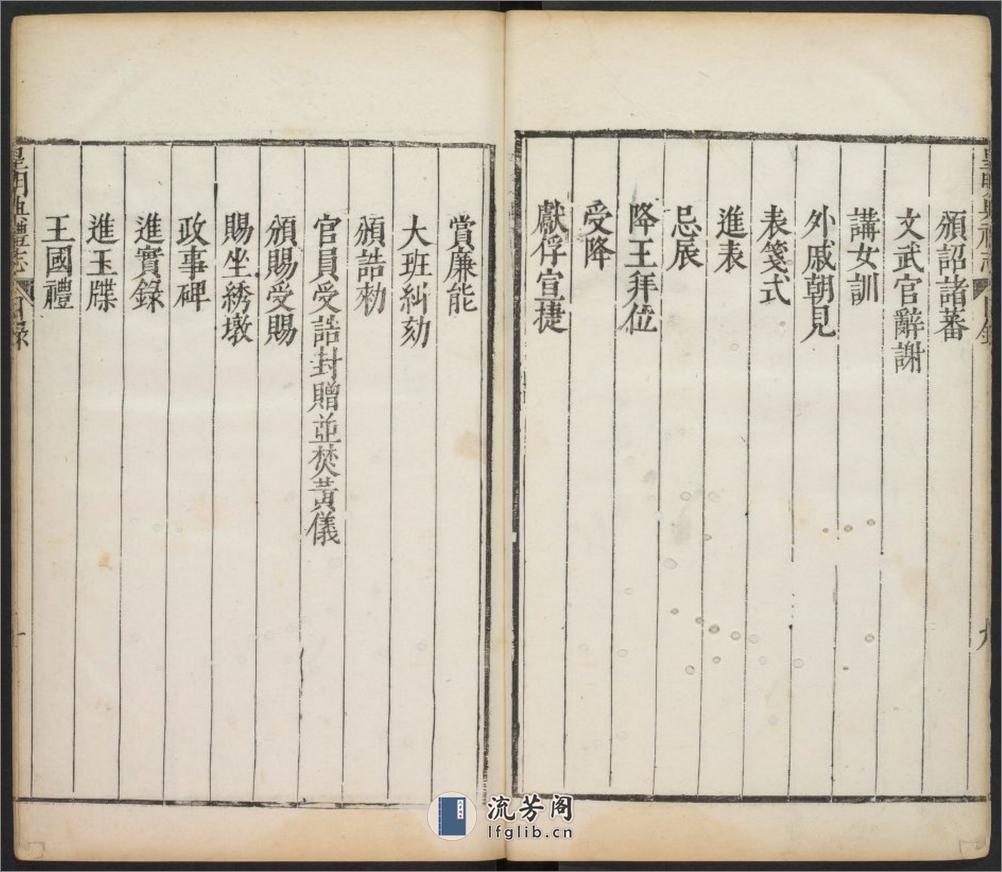 皇明典禮志 目録 九
頒詔諸蕃
文武官辭謝
講女訓
外戚朝見
表箋式
進表
忌辰
降王拜位
受降
獻俘宣捷
賞廉能
大班糾劾
頒誥勑
官員受誥封贈並焚黃儀
頒賜受賜
賜坐綉墩
政事碑
進實錄
進玉牒
王國禮
皇明典禮志 目錄
流芳阁
lfglib.cn